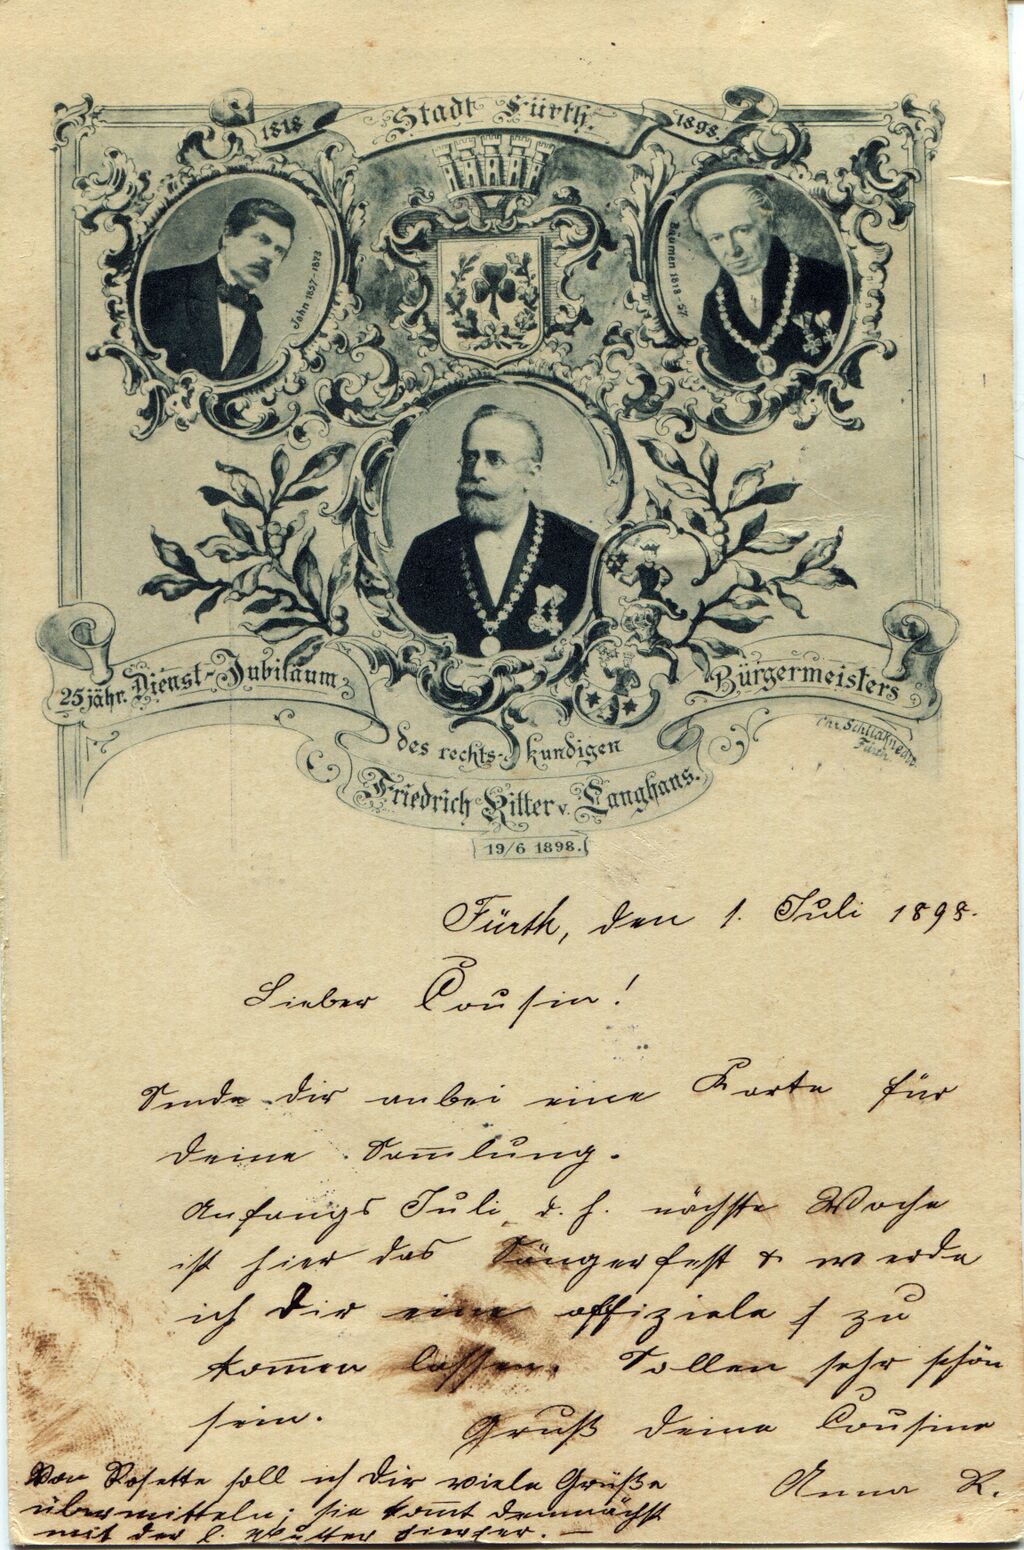 1818
Stadt Fürth.
1898.
John 1857-1873
Bäumen 1818-57.
25jähr. Dienst-Jubiläum
Bürgermeisters
des rechts-kundigen
Friedrich Ritter v. Langhans.
19/6 1898.
Fürth
Fürth, den 1. Juli 1898.
Lieber Cousin!
Sende dir anbei eine Karte für
deine Sam̄lung.
Anfangs Juli d. h. nächste Woche
ist hier das Sängerfest & werde
ich dir eine offiziele zu
kom̄en lassen. Sollen sehr schön
sein.
Gruß deine Cousine
Anna R.
Von Rosette soll ich dir viele Grüße
übermitteln; sie kom̄t demnächst
mit der l. Mutter hierher. —